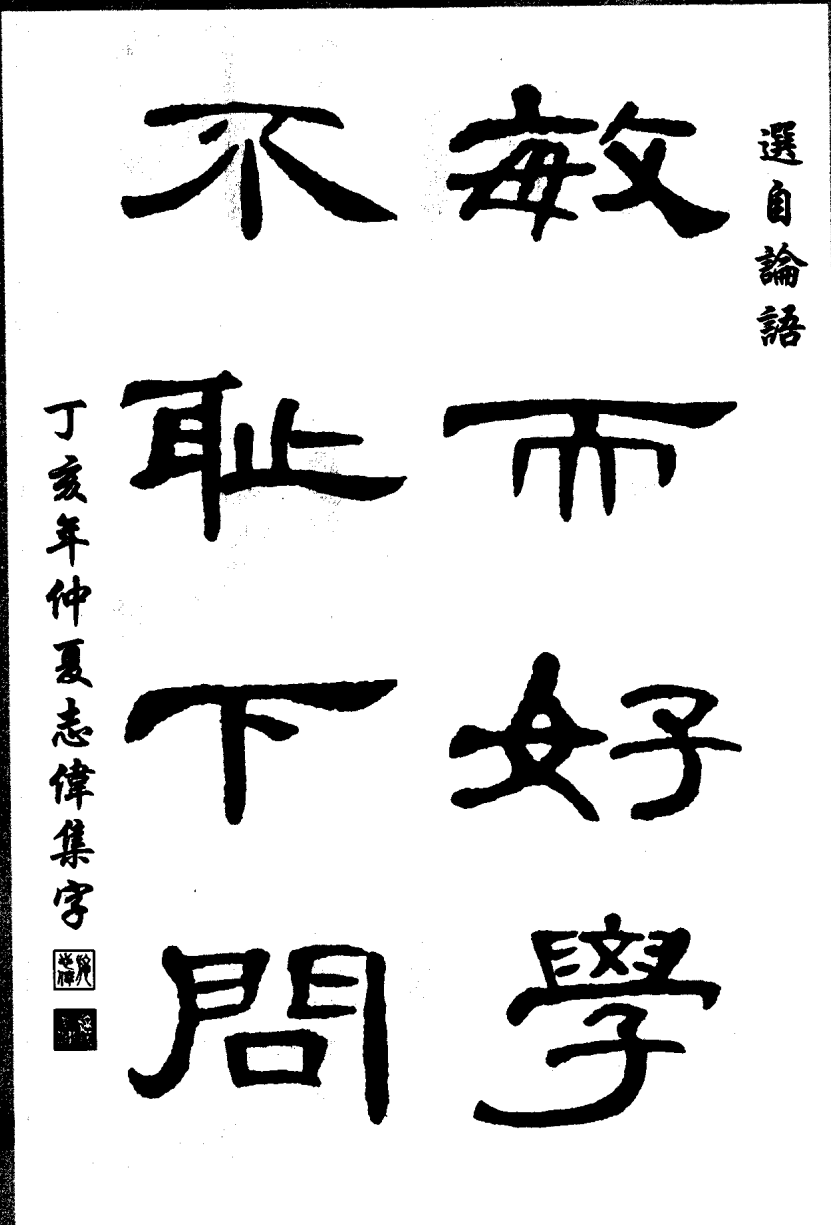 選自論語
敏而好學
不耻下問
丁亥年仲夏志偉集字